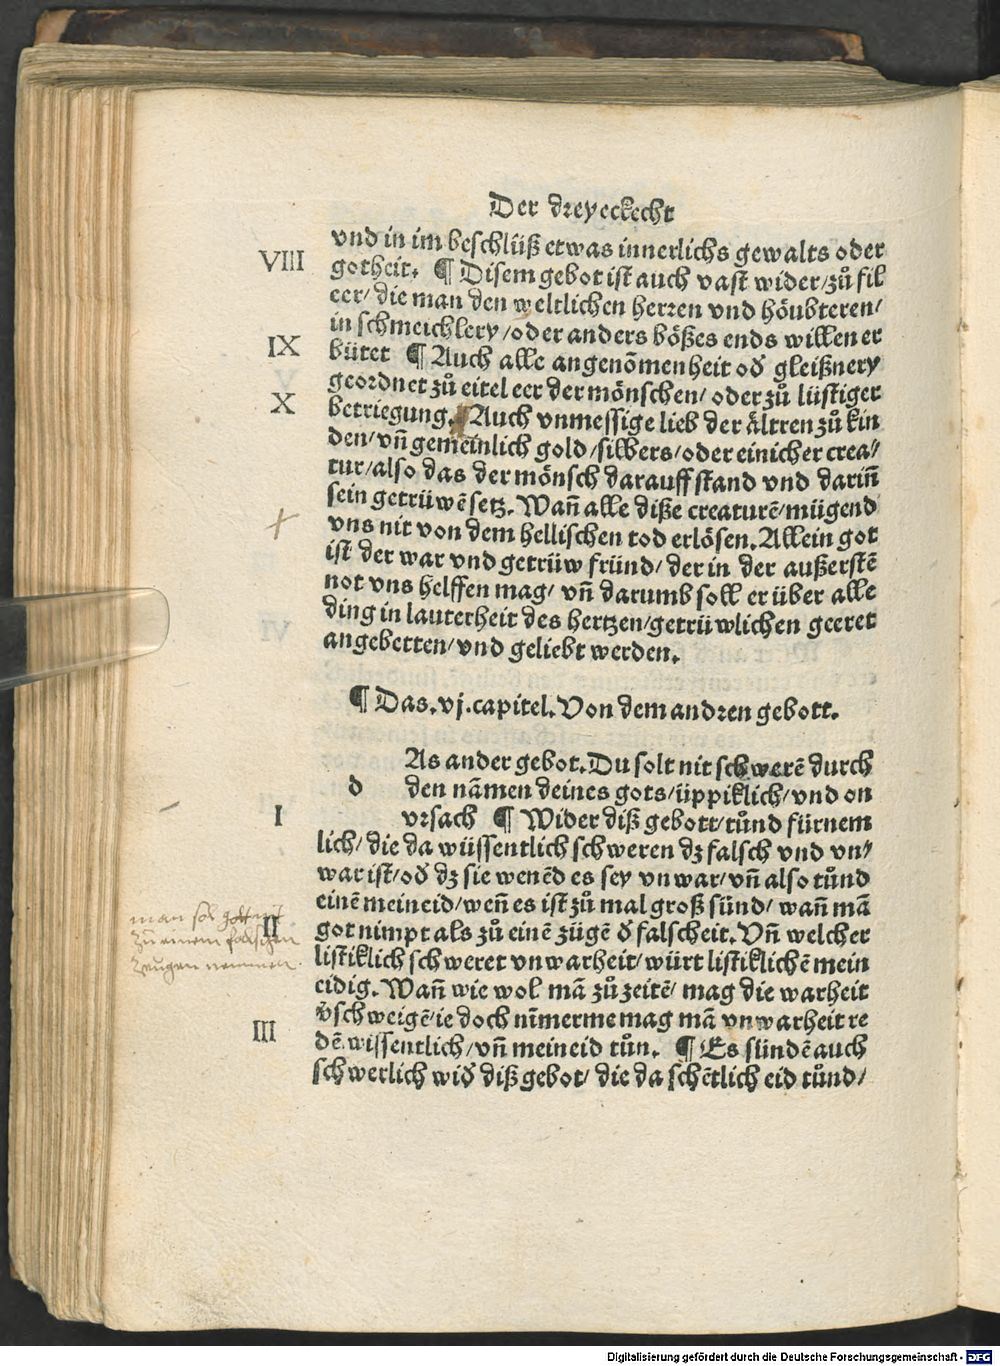 Der dreyeckecht
vnd in im beschlüß etwas innerlichs gewalts oder
VIII gotheit. ¶ Disem gebot ist auch vast wider/zů fil
eer/ die man den weltlichen herren vnd höubteren/
in schmeichlery/oder anders bößes ends willen er
IX bütet ¶ Auch alle angenõmenheit oď gleißnery
geordnet zů eitel eer der mönschen/ oder zů lüstiger
X betriegung. ¶ Auch vnmessige lieb der ältren zů kin
den/ vñ gemeinlich gold/silbers/oder einicher crea⸗
tur/also das der mönsch darauff stand vnd dariñ
sein getrüwẽ setz. Wañ alle diße creaturẽ/mügend
vns nit von dem hellischen tod erlösen. Allein got
ist der war vnd getrüw fründ/ der in der außerstẽ
not vns helffen mag/ vñ darumb soll er über alle
ding in lauterheit des hertzen/getrüwlichen geeret
angebetten/vnd geliebt werden.
¶ Das. vj. capitel. Von dem andren gebott.
As ander gebot. Du solt nit schwerẽ durch
d den nãmen deines gots/üppiklich/vnd on
I vrsach ¶ Wider diß gebott/tůnd fürnem
lich/ die da wüssentlich schweren dz falsch vnd vn⸗
war ist/oď dz sie wenẽd es sey vnwar/vñ also tůnd
einẽ meineid/weñ es ist zů mal groß sünd/ wañ mã
II got nimpt als zů einẽ zügẽ ď falscheit. Vñ welcher
listiklich schweret vnwarheit/würt listiklichẽ mein
eidig. Wañ wie wol mã zů zeitẽ/ mag die warheit
v̉schweigẽ/ie doch nĩmerme mag mã vnwarheit re
III dẽ wissentlich/vñ meineid tůn. ¶ Es sündẽ auch
schwerlich wiď diß gebot/ die da schẽtlich eid tůnd/
man sol gott nit
zů einem falschen
zeugen nemmen
Digitalisierung gefördert durch die Deutsche Forschungsgemeinschaft - DFG